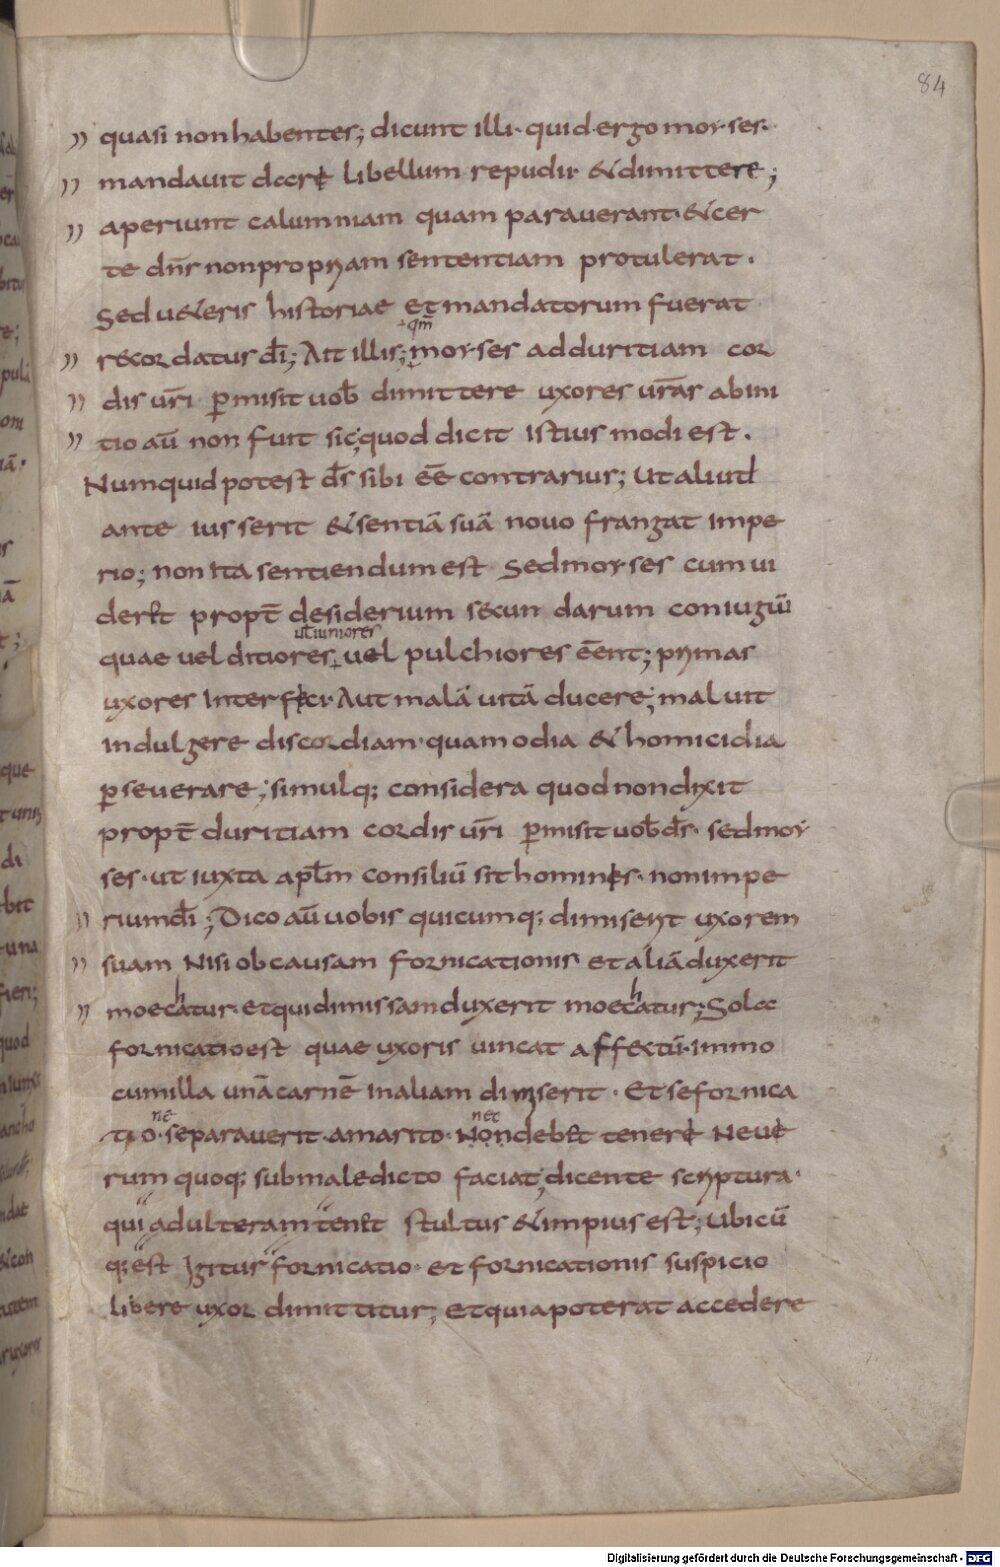 84
quasi non habentes; dicunt illi· quid ergo moyses·
mandavit dare libellum repudii· & dimittere;
aperiunt calumniam quam paraverant·& cer
te dn̄s non propriam sententiam protulerat·
Sed u&eris historiae et mandatorum fuerat
recordatus dī; Ait illis; moyses ad duritiam cor
+qm̄
dis ur̄i p̄misit uob̄ dimittere uxores ur̄as ab ini
tio aū non fuit sic; quod dicit istius modi est·
Numquid potest d̄s sibi eē contrarius; Ut aliud
ante iusserit & sentiā suā novo frangat impe
rio; non ita sentiendum est Sed moyses cum ui
der&t propt̄ desiderium secundarum coniugū
ut iuniores
quae uel ditiores uel pulchiores eēnt; primas
uxores interfici· Aut malā uitā ducere; maluit
indulgere discordiam· quam odia & homicidia
p̄severare; simulq; considera quod non dixit
propt̄ duritiam cordis ur̄i p̄misit uob̄ d̄s· sed moy
ses· ut iuxta apl̄m consiliū sit hominis· non impe
rium dī; Dico aū uobis quicumq; dimiserit uxorem
suam Nisi ob causam fornicationis et aliā duxerit
moechatur· et qui dimissam duxerit moechatur; Sola
fornicatio est quae uxoris uincat affectū· immo
cum illa unā carnē in aliam diviserit· Et se fornica
ne nec
tio· separaverit· a marito· Non deb&t tener& Neve
rum quoq; sub maledicto faciat; dicente scriptura·
qui adulteram ten&t stultus & impius est; Ubicū
q; est Igitur fornicatio· et fornicationis suspicio
libere uxor dimittitur; Et quia poterat accedere
Digitalisierung gefördert durch die Deutsche Forschungsgemeinschaft - DFG